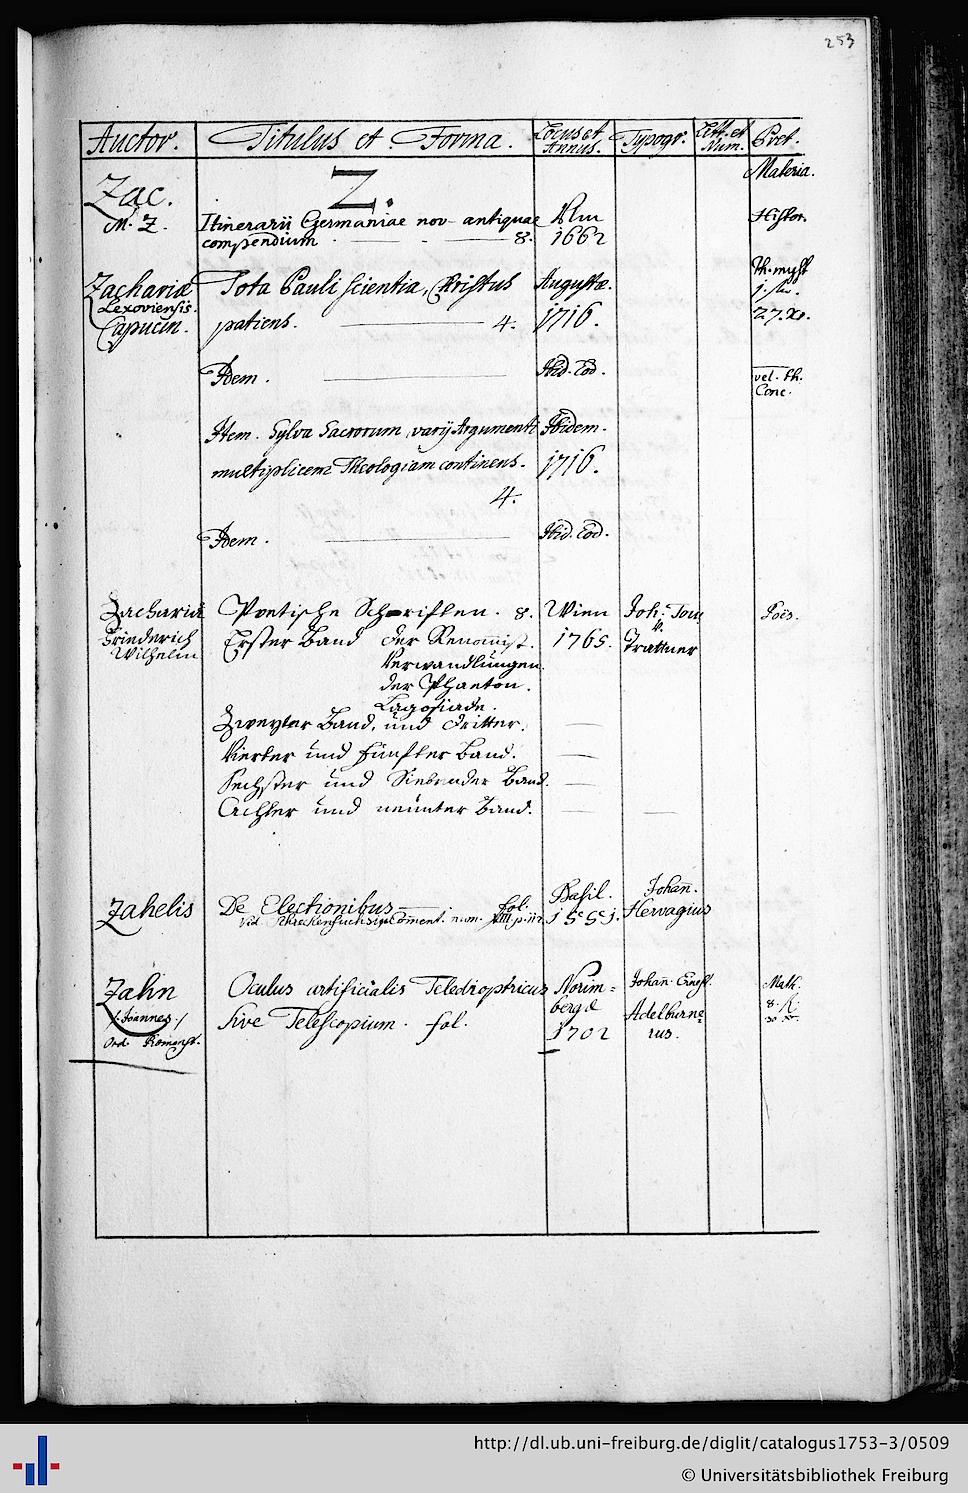 253
Auctor. Titulus et Forma. Locus et Annus. Typogr. Litt. et Num. Pret.
Materia.
Z.
Zac.
M. Z. Itinerarii Germaniae nov-antiquae Ulm Histor.
compendium 8. 1662
Zachariae Tota Pauli scientia, Christus Augustae. Th. myst
Lexoviensis.
Capucin. patiens. 4. 1716. 27. xr.
Idem. Ibid. Eod. vel. th.
Conc.
Item. Sylva Sacrorum, varij Argumenti Ibidem.
multiplicem Theologiam continens. 1716.
4.
Idem. Ibid. Eod.
Zachariä Poetische Schriften. 8. Wien Joh. Tom Poës.
Friederich Erster Band der Renomist. 1765. Trattner
Wilhelm Verwandlungen
der Phaeton.
Lagosiade.
Zweyter Band, und dritter.
Vierter und fünfter Band.
Sechster und Siebender Band.
Achter und neünter Band.
Zahelis De Electionibus fol. Basil. Johan.
1551. Hervagius
Zahn Oculus artificialis Teledioptricus Norim= Johan Ernst. Math.
/Joannes/ sive Telescopium. fol. bergae Adelburne= 8. fl.
Ord. 1702 rus.
http://dl.ub.uni-freiburg.de/diglit/catalogus1753-3/0509
© Universitätsbibliothek Freiburg